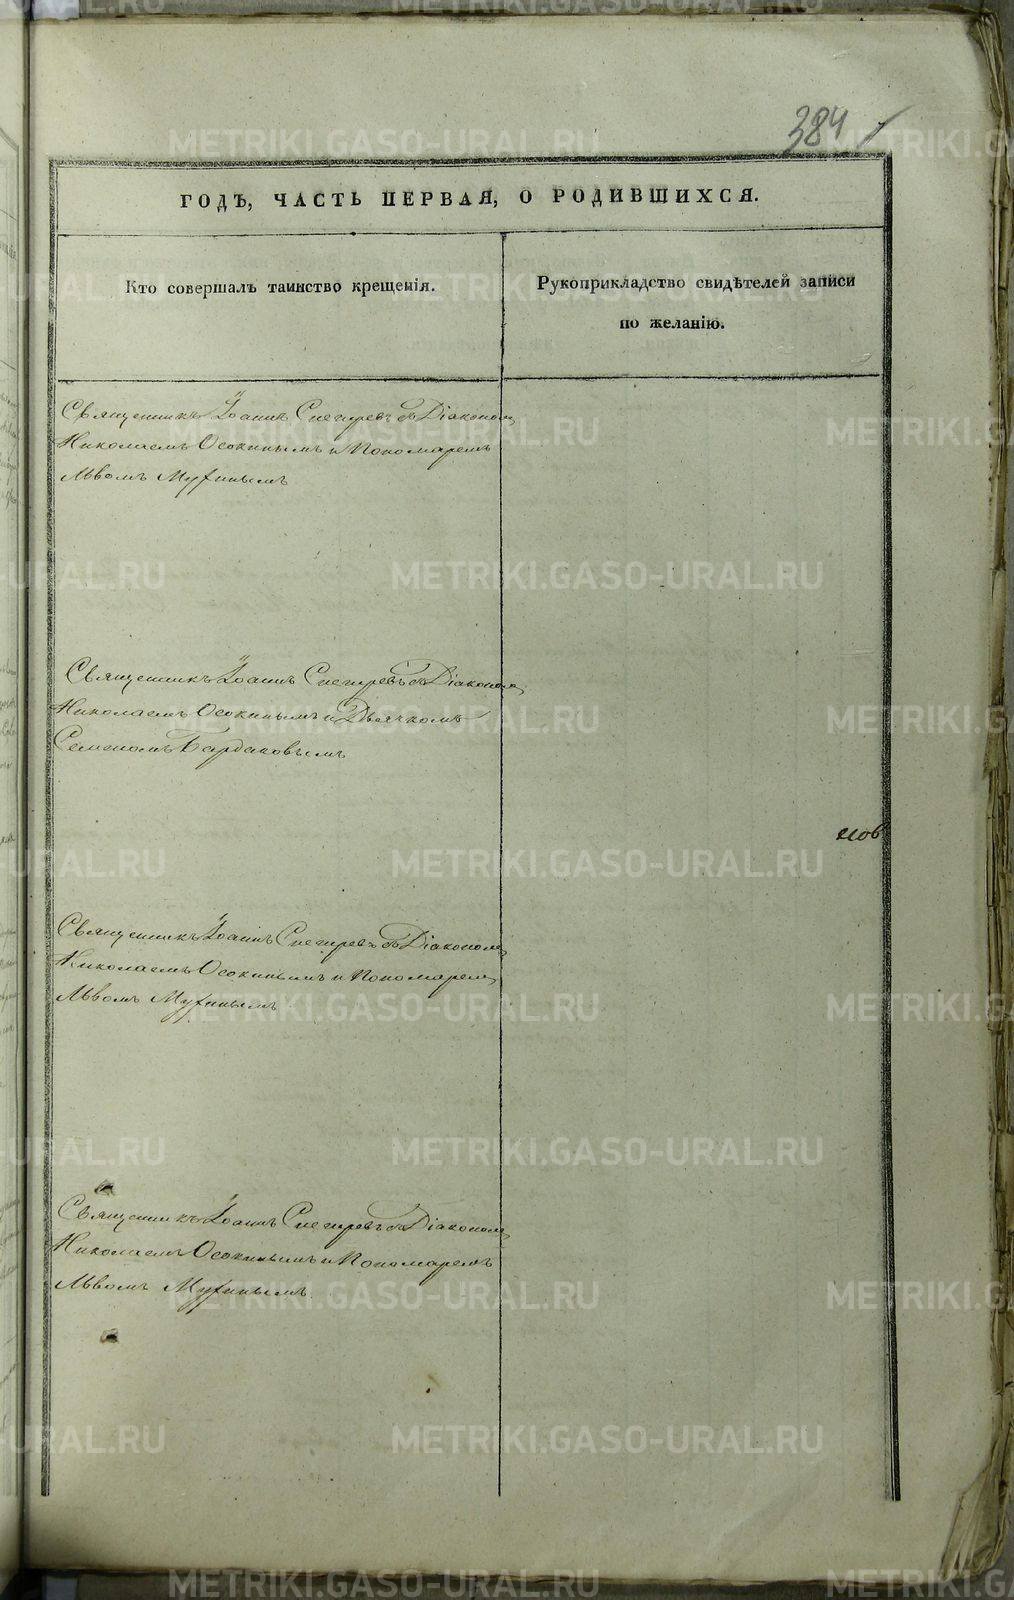 384
ГОДЪ, ЧАСТЬ ПЕРВАЯ, О РОДИВШИХСЯ.
Кто совершалъ таинство крещенія.
Рукоприкладство свидѣтелей записи
по желанію.
Священникъ Іоаннъ Снегиревъ съ Діакономъ
Николаемъ Осокинымъ и Пономаремъ
Львомъ Мухинымъ
Священникъ Іоаннъ Снегиревъ съ Діакономъ
Николаемъ Осокинымъ и Дьячкомъ
Семеномъ Бардаковымъ
Священникъ Іоаннъ Снегиревъ съ Діакономъ
Николаемъ Осокинымъ и Пономаремъ
Львомъ Мухинымъ
Священникъ Іоаннъ Снегиревъ съ Діакономъ
Николаемъ Осокинымъ и Пономаремъ
Львомъ Мухинымъ
METRIKI.GASO-URAL.RU